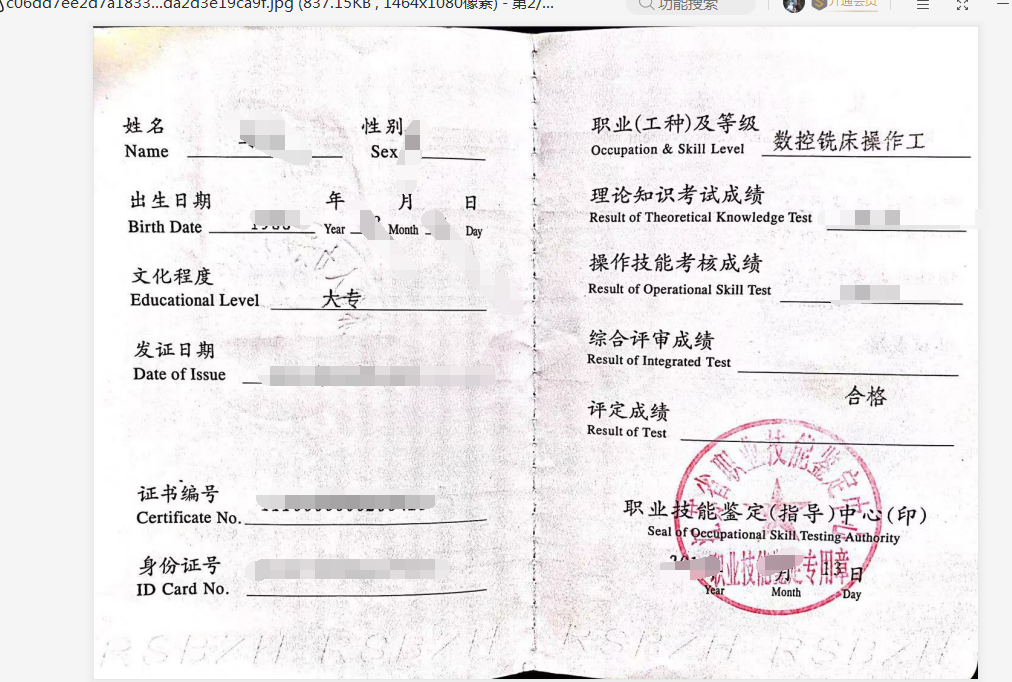 c06dd7ee2d7a1833...da2d3e19ca9f.jpg (837.15KB , 1464x1080像素) - 第2/...
功能搜索
开通会员
姓名
Name
性别
Sex
出生日期 年 月 日
Birth Date Year Month Day
文化程度
Educational Level 大专
发证日期
Date of Issue
证书编号
Certificate No.
身份证号
ID Card No.
职业(工种)及等级
Occupation & Skill Level 数控铣床操作工
理论知识考试成绩
Result of Theoretical Knowledge Test
操作技能考核成绩
Result of Operational Skill Test
综合评审成绩
Result of Integrated Test
合格
评定成绩
Result of Test
省职业技能鉴定中心
职业技能鉴定(指导)中心(印)
Seal of Occupational Skill Testing Authority
职业技能鉴定专用章
月 13 日
Year Month Day
RSBZH RSBZH RSBZH RSBZH